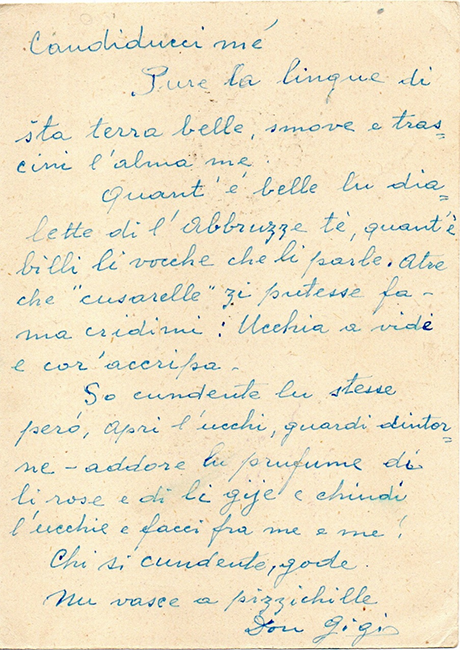 Candiducci mé
Pure la lingue di
šta terra belle, smove e tras=
cini l'alma me.
Quant'é belle lu dia=
lette di l'Abbruzze té, quant'é
billi li vocche che li parle. Atre
che "cusarelle" zi putesse fa -
ma cridimi! Ucchia a vidé
e cor'accripa -
So cundente lu stesse
però, apri l'ucchi, guardi dintor=
ne - addore lu prufume di
li rose e di li gije e chindi
l'ucchie e facci fra me e me!
Chi si cundente, gode.
Nu vasce a pizzichille
Don Gigi